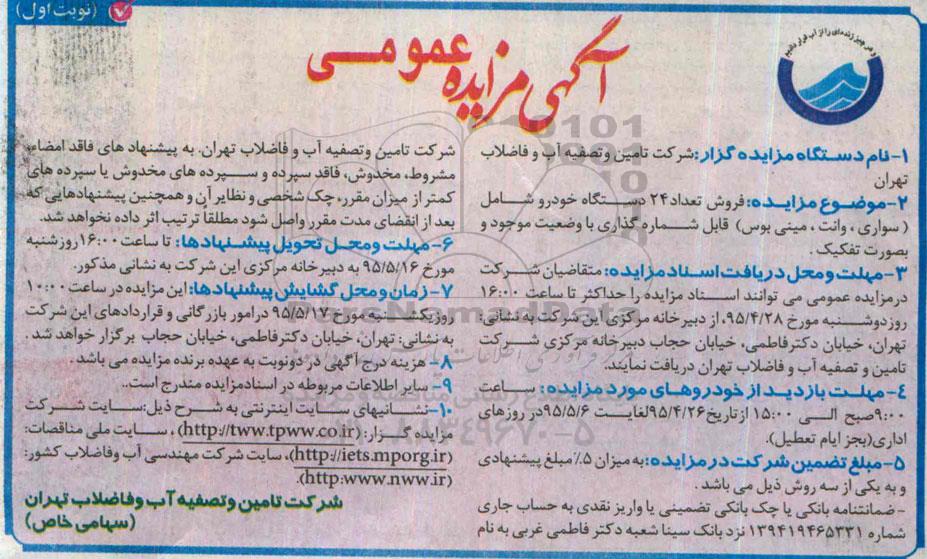 (نوبت اول)
و هر چیز زنده‌ای را از آب قرار دادیم
آگهی مزایده عمومی
۱-نام دستگاه مزایده گزار: شرکت تامین وتصفیه آب و فاضلاب
تهران
۲-موضوع مزایده: فروش تعداد ۲۴ دستگاه خودرو شامل
( سواری ، وانت ، مینی بوس) قابل شماره گذاری با وضعیت موجود و
بصورت تفکیک .
۳-مهلت ومحل دریافت اسناد مزایده: متقاضیان شرکت
درمزایده عمومی می توانند اسناد مزایده را حداکثر تا ساعت ۱۶:۰۰
روزدوشنبه مورخ ۹۵/۴/۲۸، از دبیرخانه مرکزی این شرکت به نشانی:
تهران، خیابان دکترفاطمی، خیابان حجاب دبیرخانه مرکزی شرکت
تامین و تصفیه آب و فاضلاب تهران دریافت نمایند.
۴-مهلت بازدید از خودروهای مورد مزایده: ساعت
۹:۰۰صبح الی ۱۵:۰۰ ازتاریخ ۹۵/۴/۲۶لغایت ۹۵/۵/۶در روزهای
اداری(بجز ایام تعطیل).
۵-مبلغ تضمین شرکت در مزایده: به میزان ۵٪ مبلغ پیشنهادی
و به یکی از سه روش ذیل می باشد .
- ضمانتنامه بانکی یا چک بانکی تضمینی یا واریز نقدی به حساب جاری
شماره ۱۳۹۴۱۹۴۶۵۳۳۱ نزد بانک سینا شعبه دکتر فاطمی غربی به نام
شرکت تامین وتصفیه آب و فاضلاب تهران. به پیشنهاد های فاقد امضاء،
مشروط، مخدوش، فاقد سپرده و سپرده های مخدوش یا سپرده های
کمتر از میزان مقرر، چک شخصی و نظایر آن و همچنین پیشنهادهایی که
بعد از انقضای مدت مقرر واصل شود مطلقاً ترتیب اثر داده نخواهد شد.
۶-مهلت ومحل تحویل پیشنهادها: تا ساعت ۱۶:۰۰روزشنبه
مورخ ۹۵/۵/۱۶ به دبیرخانه مرکزی این شرکت به نشانی مذکور.
۷-زمان ومحل گشایش پیشنهادها: این مزایده در ساعت ۱۰:۰۰
روزیکشنبه مورخ ۹۵/۵/۱۷ درامور بازرگانی و قراردادهای این شرکت
به نشانی: تهران، خیابان دکترفاطمی، خیابان حجاب برگزار خواهد شد .
۸- هزینه درج آگهی در دونوبت به عهده برنده مزایده می باشد .
۹- سایر اطلاعات مربوطه در اسنادمزایده مندرج است..
۱۰-نشانیهای سایت اینترنتی به شرح ذیل:سایت شرکت
مزایده گزار: (http://tww.tpww.co.ir) ، سایت ملی مناقصات:
(http://iets.mporg.ir)، سایت شرکت مهندسی آب وفاضلاب کشور:
(http:www.nww.ir).
شرکت تامین وتصفیه آب وفاضلاب تهران
(سهامی خاص)
ParsNamadData
۰۲۱-۸۸۳۴۹۶۷۰-۵